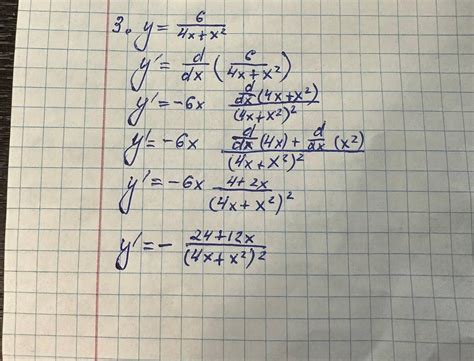 3. y = 6/(4x+x²)
y' = d/dx (6/(4x+x²))
y' = -6x (d/dx (4x+x²))/(4x+x²)²
y' = -6x (d/dx (4x) + d/dx (x²))/(4x+x²)²
y' = -6x (4+2x)/(4x+x²)²
y' = - (24+12x)/(4x+x²)²